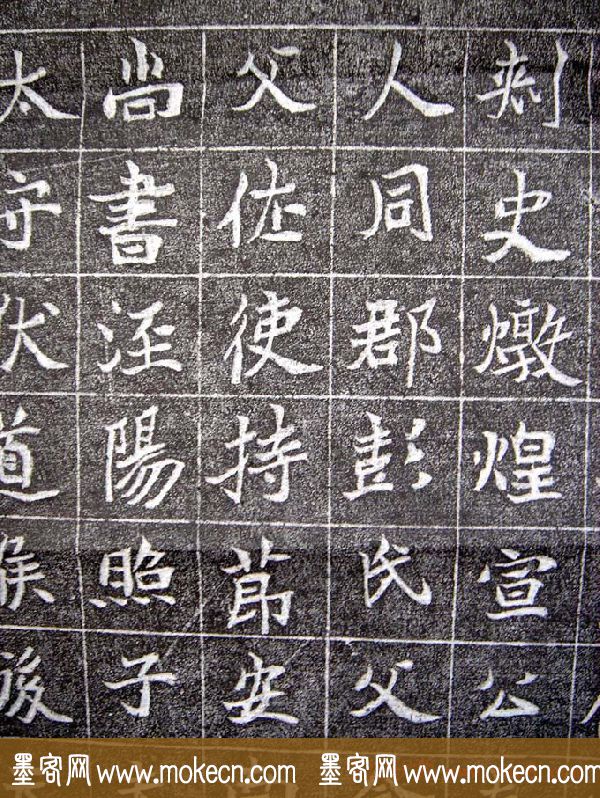 刺史燉煌宣公
人同郡彭氏父
父佐使持莭安
尚書涇陽照子
太守伏道侯後
墨客网 www.mokecn.com 墨客网 www.mokecn.com